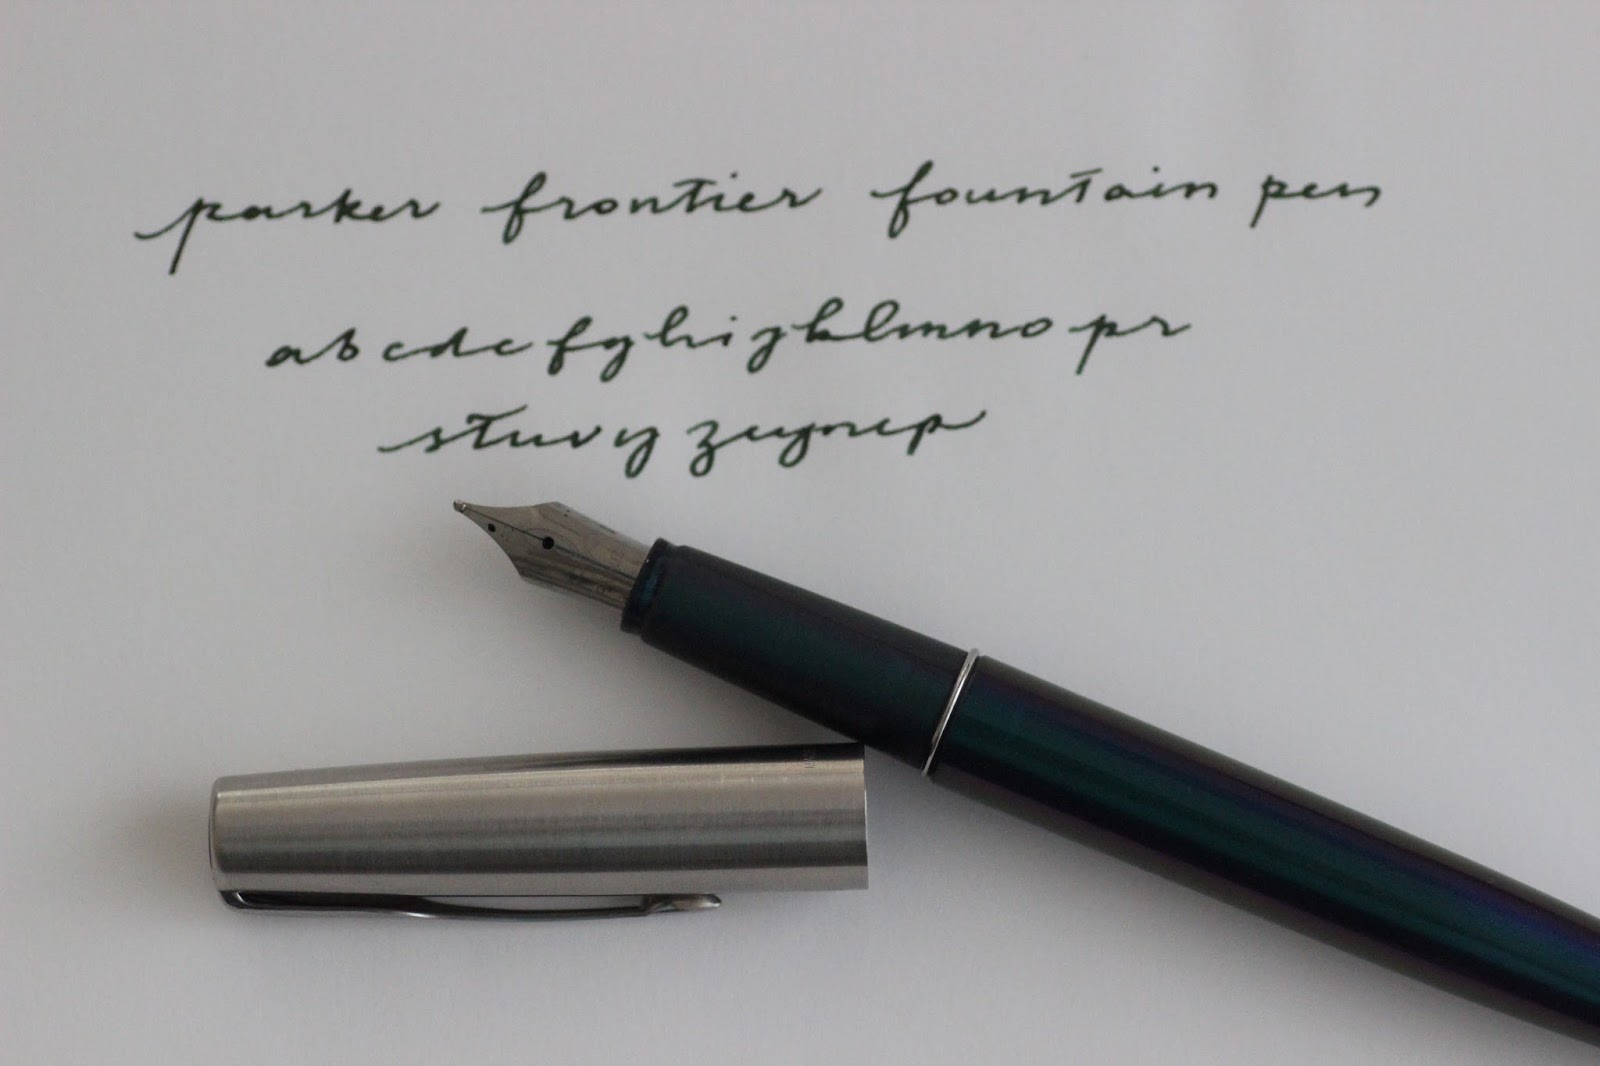 parker frontier fountain pen
abcdefghijklmno pr
stuvy zeynep